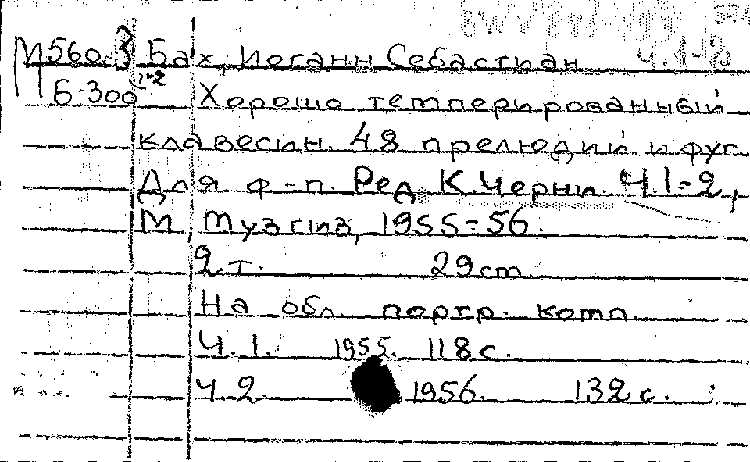 М560.3 Бах, Иоганн Себастиан ч.1-2
Б-300 1-2 Хорошо темперированный
клавесин. 48 прелюдий и фуг.
Для ф-п. Ред. К. Черни. Ч.1-2,
М, Музгиз, 1955-56.
2 т. 29 cm
На обл. портр. комп.
Ч.1. 1955. 118 с.
Ч.2 1956. 132 с.